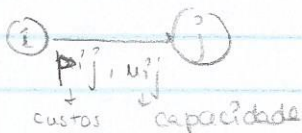 i j
pij, uij
custos capacidade